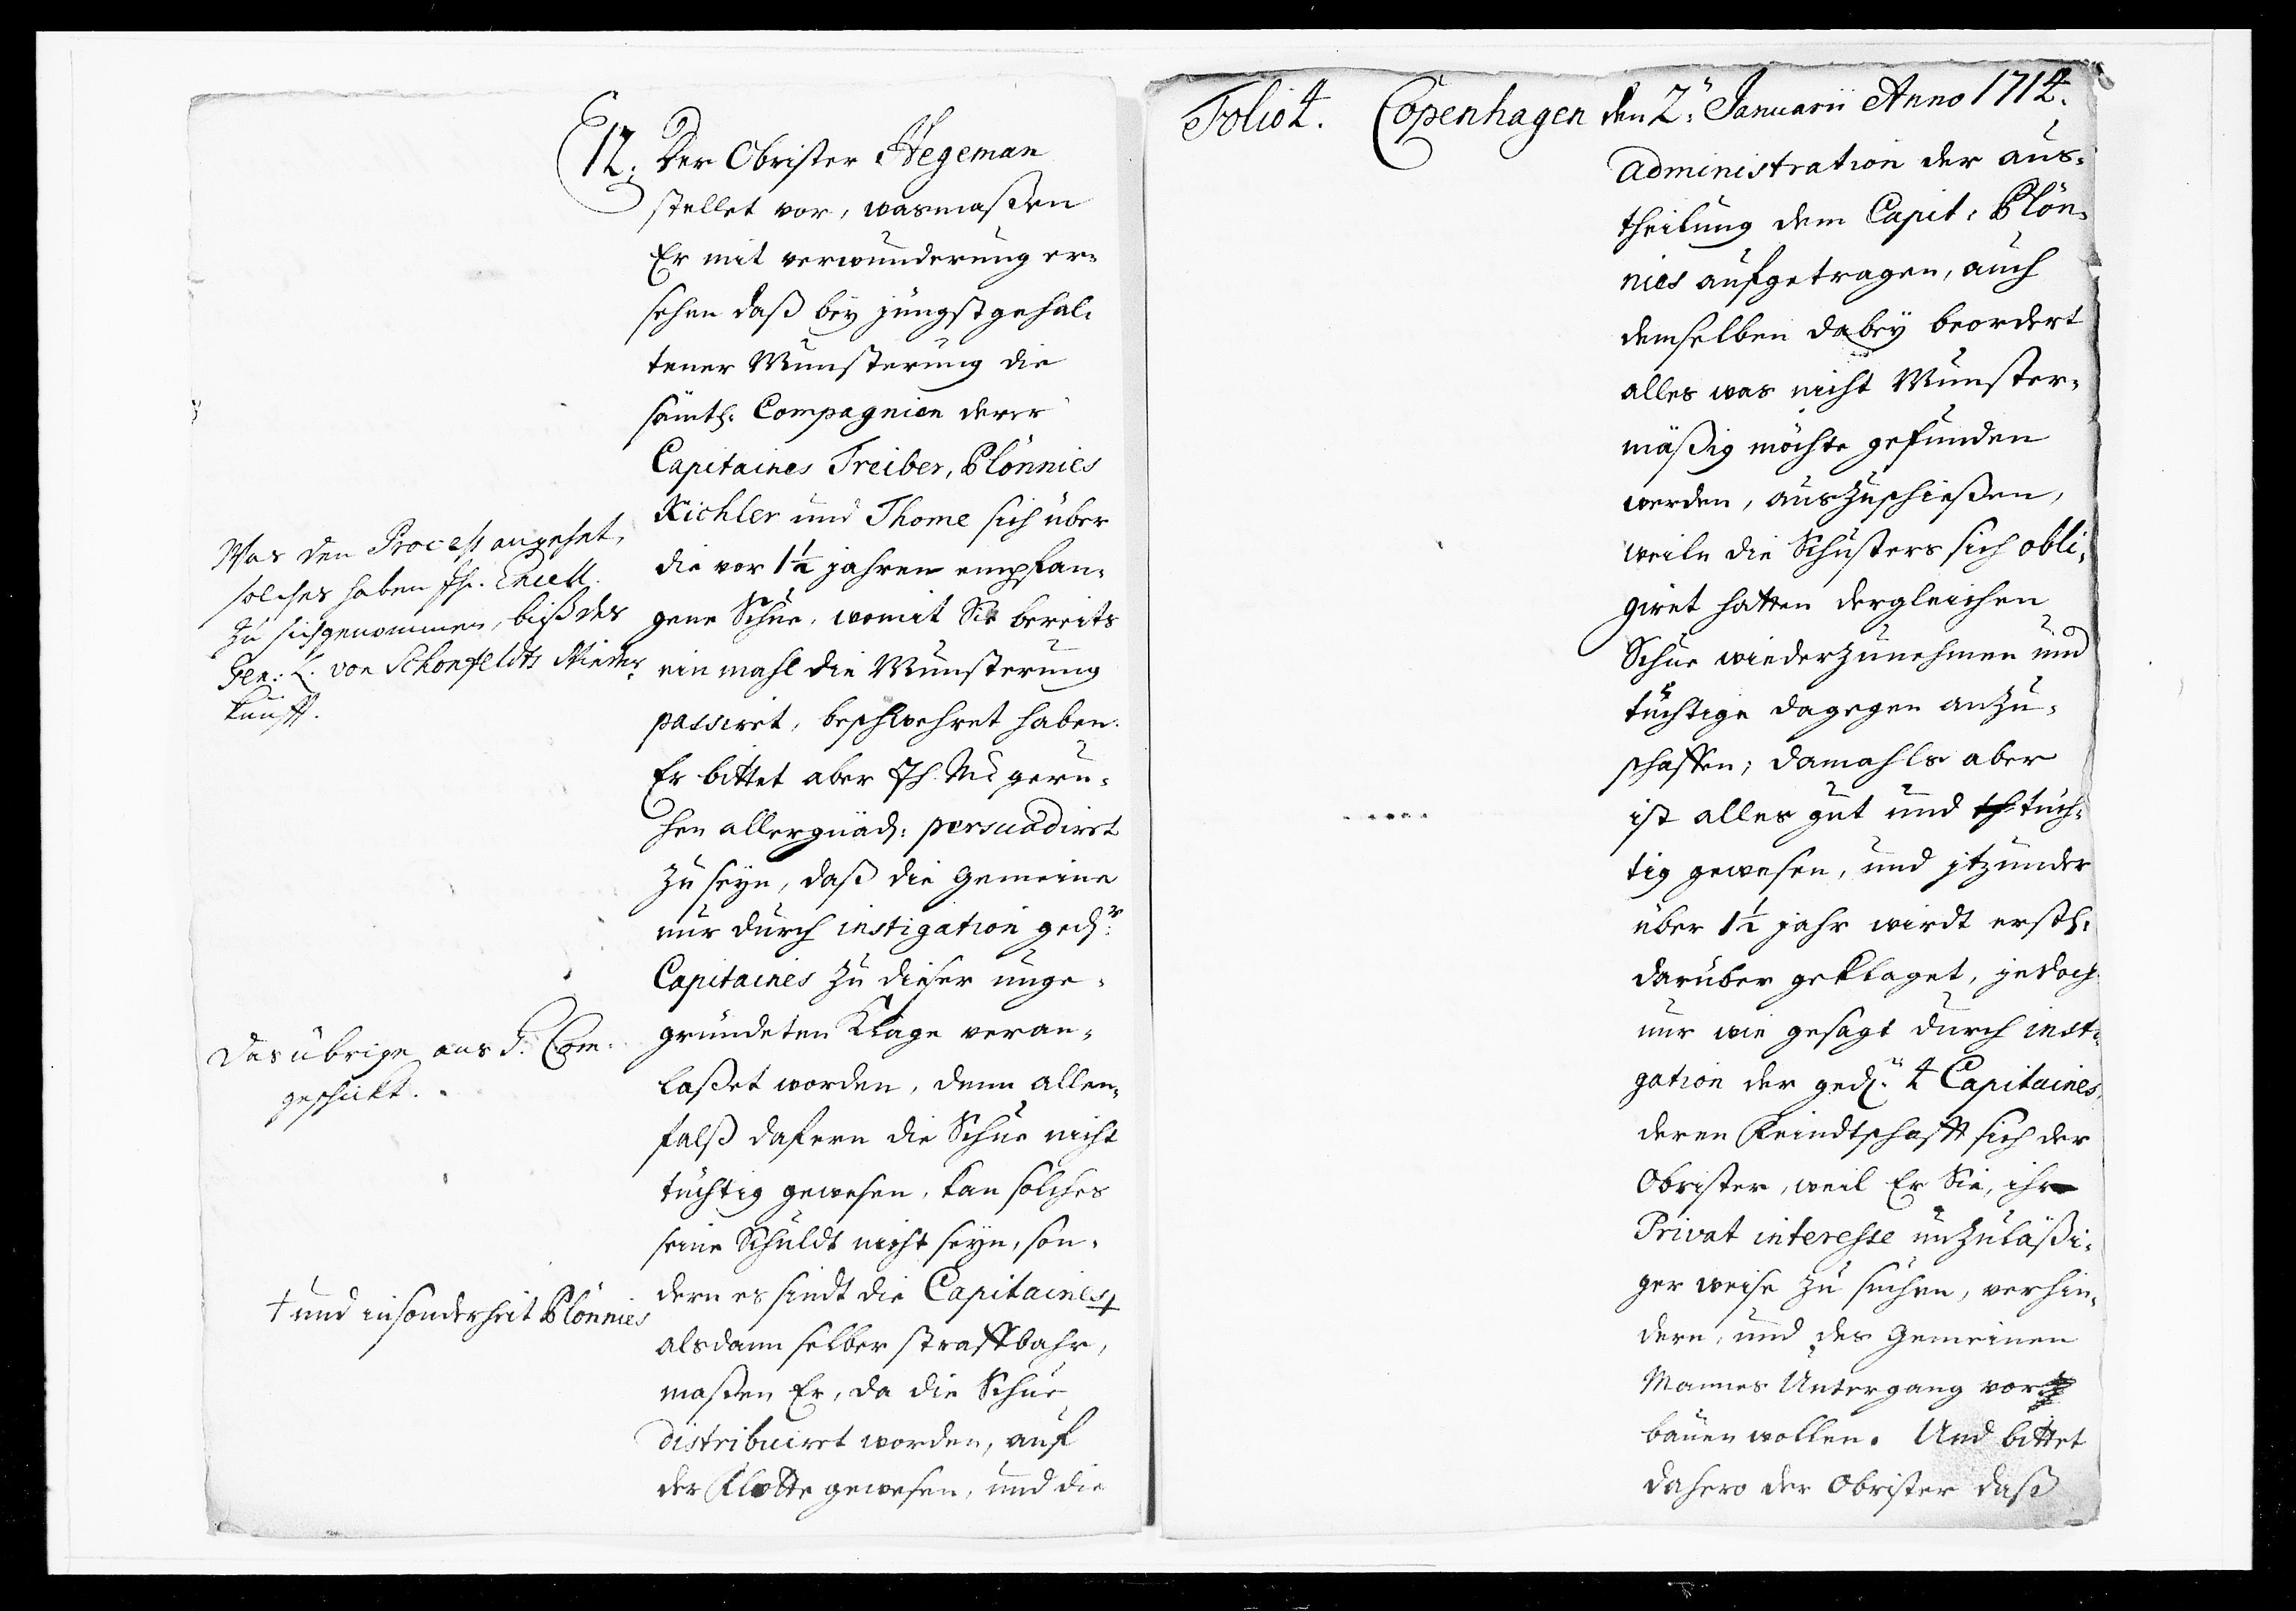 12. Der Obrister Hegeman
stellet vor, wasmaßen
Er mit verwunderung er=
sehen daß bey jüngst gehal=
tener Munsterung die
sämtl: Compagnien derer
Capitaines Treiber, Plönnies
Richler und Thome sich über
die vor 1½ jahren empfan=
gene Schue, womit Sie bereits
ein mahl die Munsterung
passiret, beschwehret haben.
Er bittet aber Ih. Mt geru=
hen allergnäd: persuadiret
zu seyn, daß die Gemeine
nur durch instigation ged:r
Capitaines zu dieser unge=
gründeten Klage veran=
laßet worden, denn allen=
falß dafern die Schue nicht
tüchtig gewesen, kan solches
seine Schuldt nicht seyn, son=
dern es sindt die Capitaines +
alsdann selber straffbahr,
maßen Er, da die Schue
distribuiret worden, auf
der Flotte gewesen, und die
Was den Process angehet,
solches haben Ih. Excell.
zu sich genommen, biß des
Gen: L. von Schonfeldts Wieder
kunfft.
Das übrige aus G. Com.
geschickt.
+ und in sonderheit Plönnies
Folio 4. Copenhagen den 2: Januarii Anno 1714.
administration der aus=
theilung dem Capit: Plön=
nies aufgetragen, auch
demselben dabey beordert
alles was nicht Munster=
mäßig möchte gefunden
werden, auszuschießen,
weiln die Schusters sich obli=
giret hatten dergleichen
Schue wiederzunehmen und
tüchtige dagegen anzu=
schaffen; damahls aber
ist alles gut und tüch=
tig gewesen, und jtzunder
über 1½ jahr wirdt erstl:
darüber geklaget, jedoch
nur wie gesagt durch insti=
gation der ged:n 4 Capitaines,
deren Feindtschafft sich der
Obrister, weil Er Sie, ihr
Privat interesse unzuläßi=
ger weise zu suchen, verhin=
dern, und des Gemeinen
Mannes Untergang vor
bauen wollen. Und bittet
dahero der Obrister daß